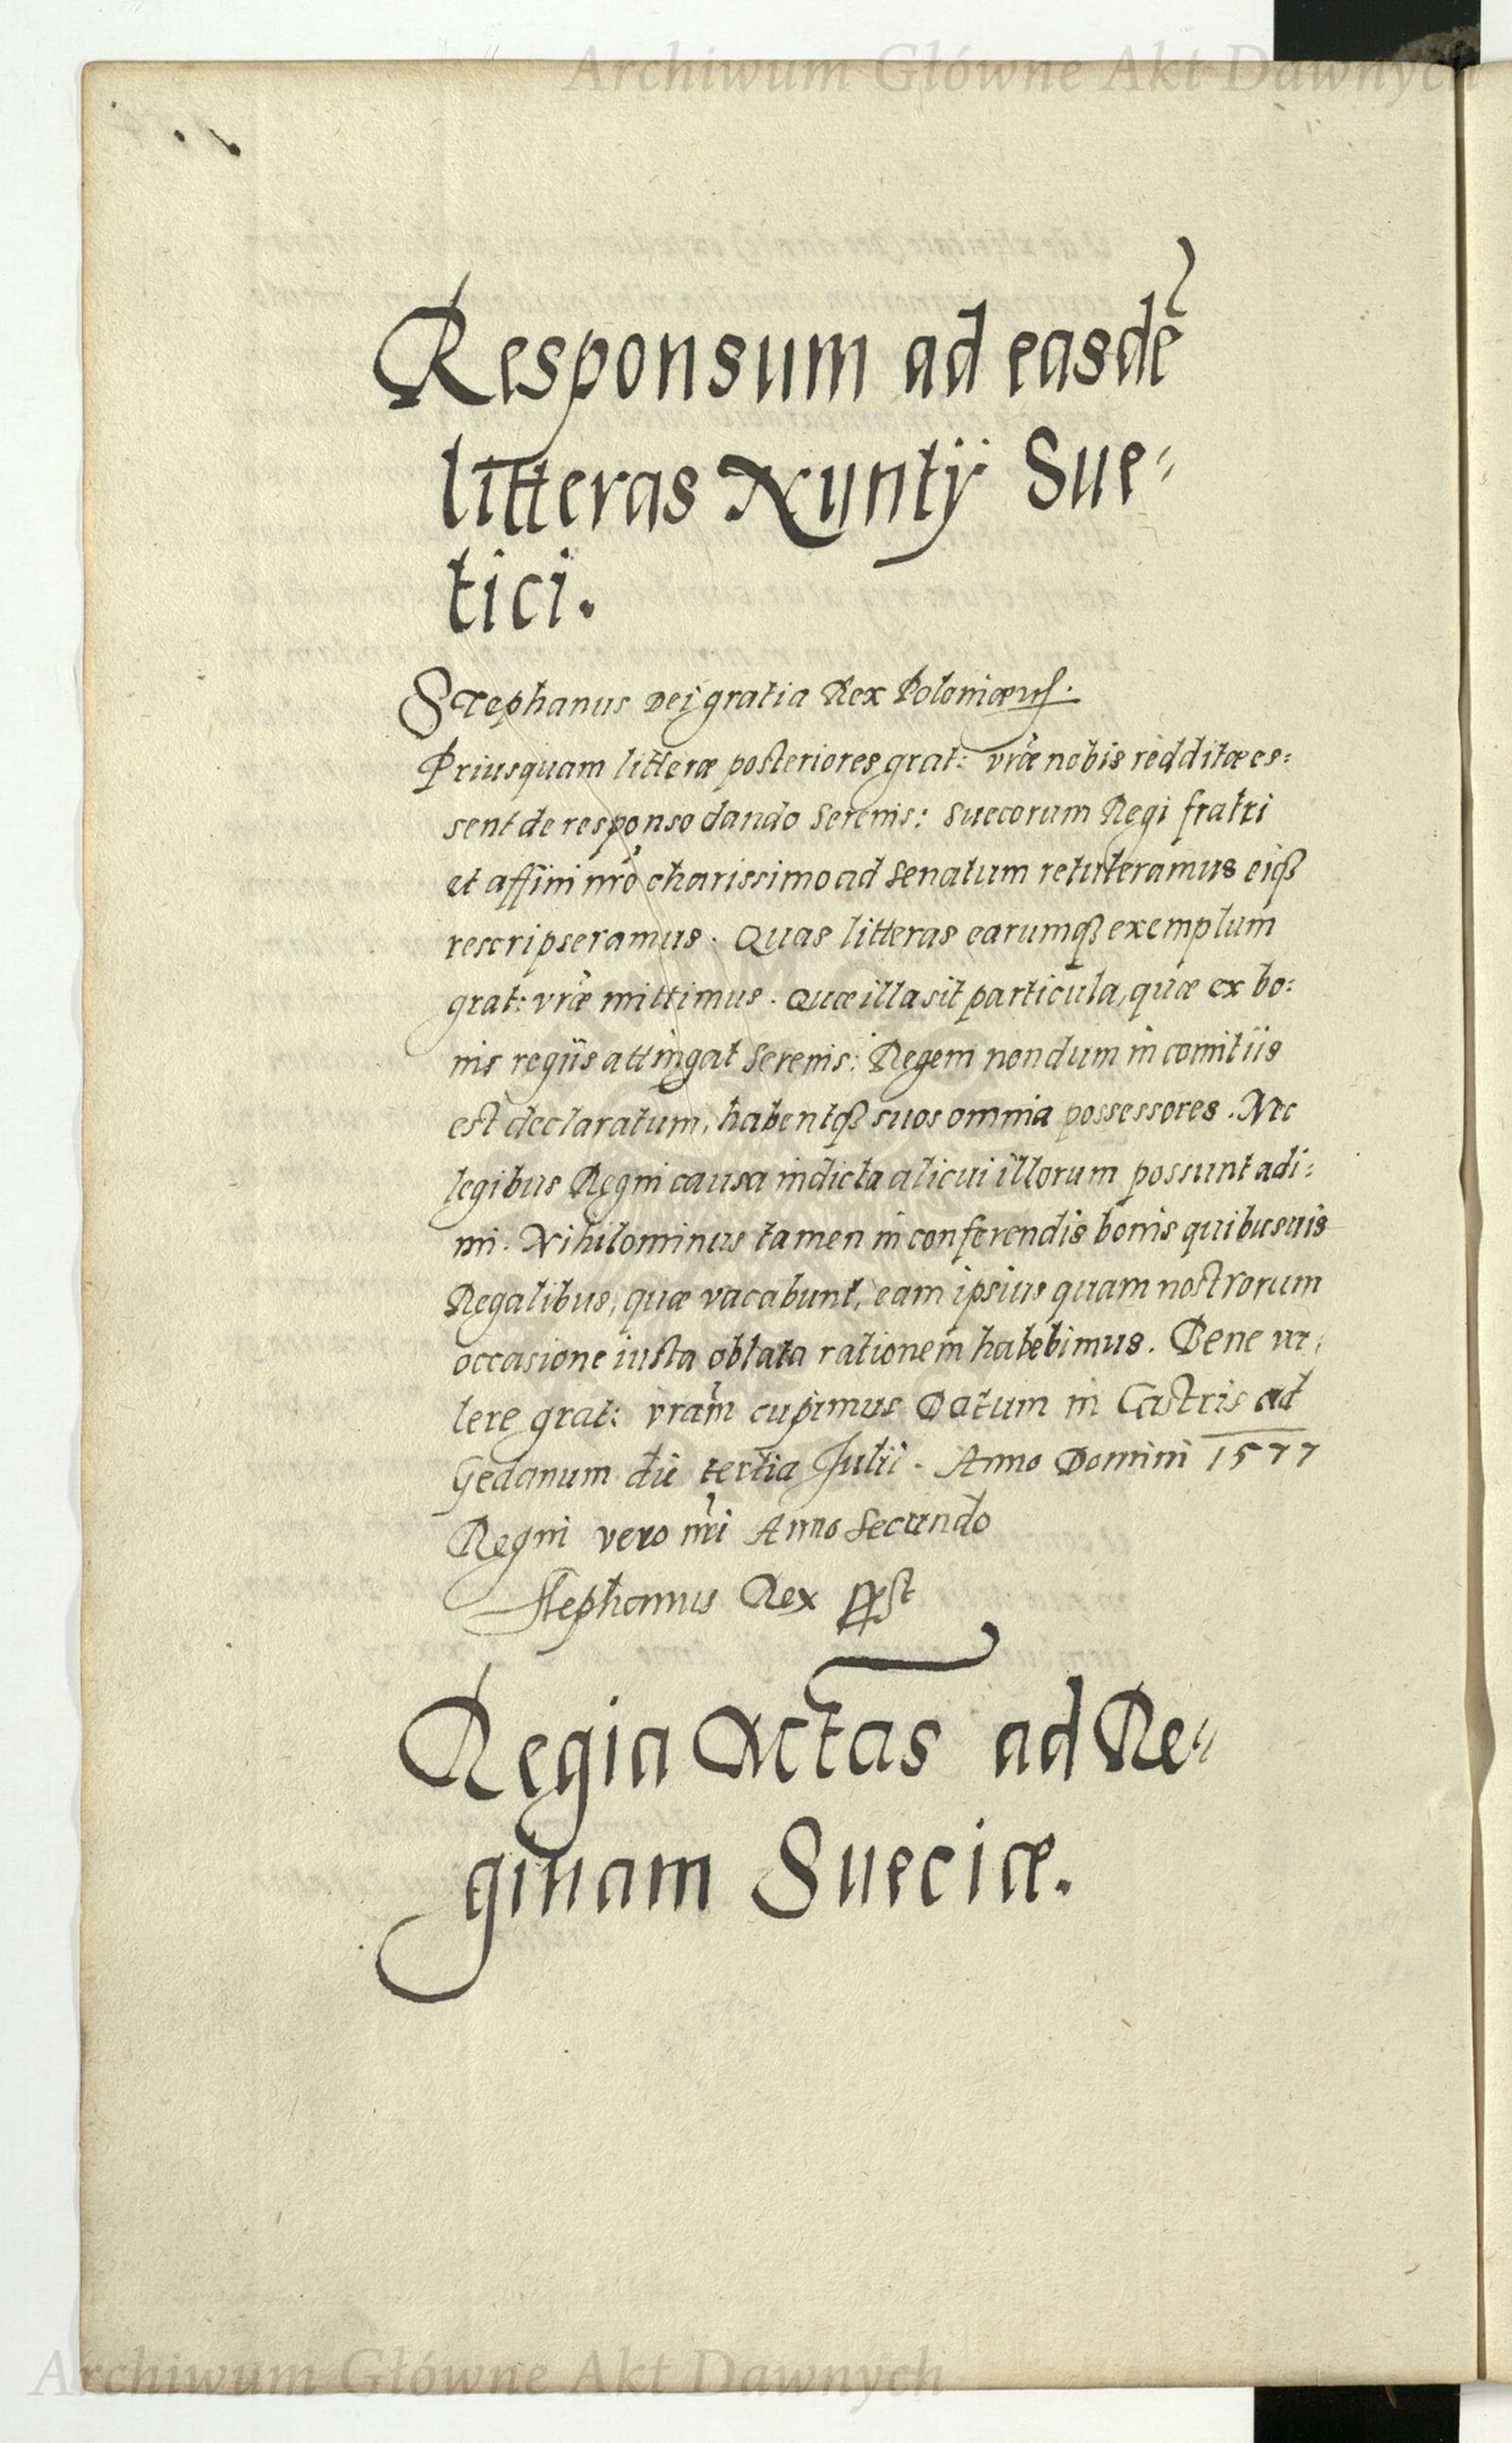 Archiwum Główne Akt Dawnych
Responsum ad easdē
litteras Nuntij Sue=
tici.
Stephanus Dei gratia Rex Poloniæ
Priusquam litteræ posteriores grat: vræ nobis redditæ es=
sent de responso dando Serenis: Suecorum Regi fratri
et affini nrõ charissimo ad Senatum retuleramus eiqȝ
rescripseramus. Quas litteras earumqȝ exemplum
grat: vræ mittimus. Quæ illa sit particula, quæ ex bo=
nis regiis attingat Serenis: Regem nondum in comitiis
est declaratum, habentqȝ suos omnia possessores. Nec
legibus Regni causa indicta alicui illorum possunt adi=
mi. Nihilominus tamen in conferendis bonis quibusuis
Regalibus, quæ vacabunt, eam ipsius quam nostrorum
occasione iusta oblata rationem habebimus. Bene va=
lere grat: vram cupimus Datum in Castris ad
Gedanum die tertia Julii. Anno Domini 1577
Regni vero nri Anno Secundo
Stephanus Rex sst
Regia Mctas ad Re=
ginam Sueciæ.
Archiwum Główne Akt Dawnych